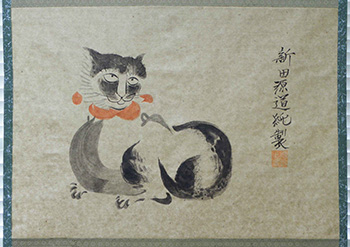 新田源道純製